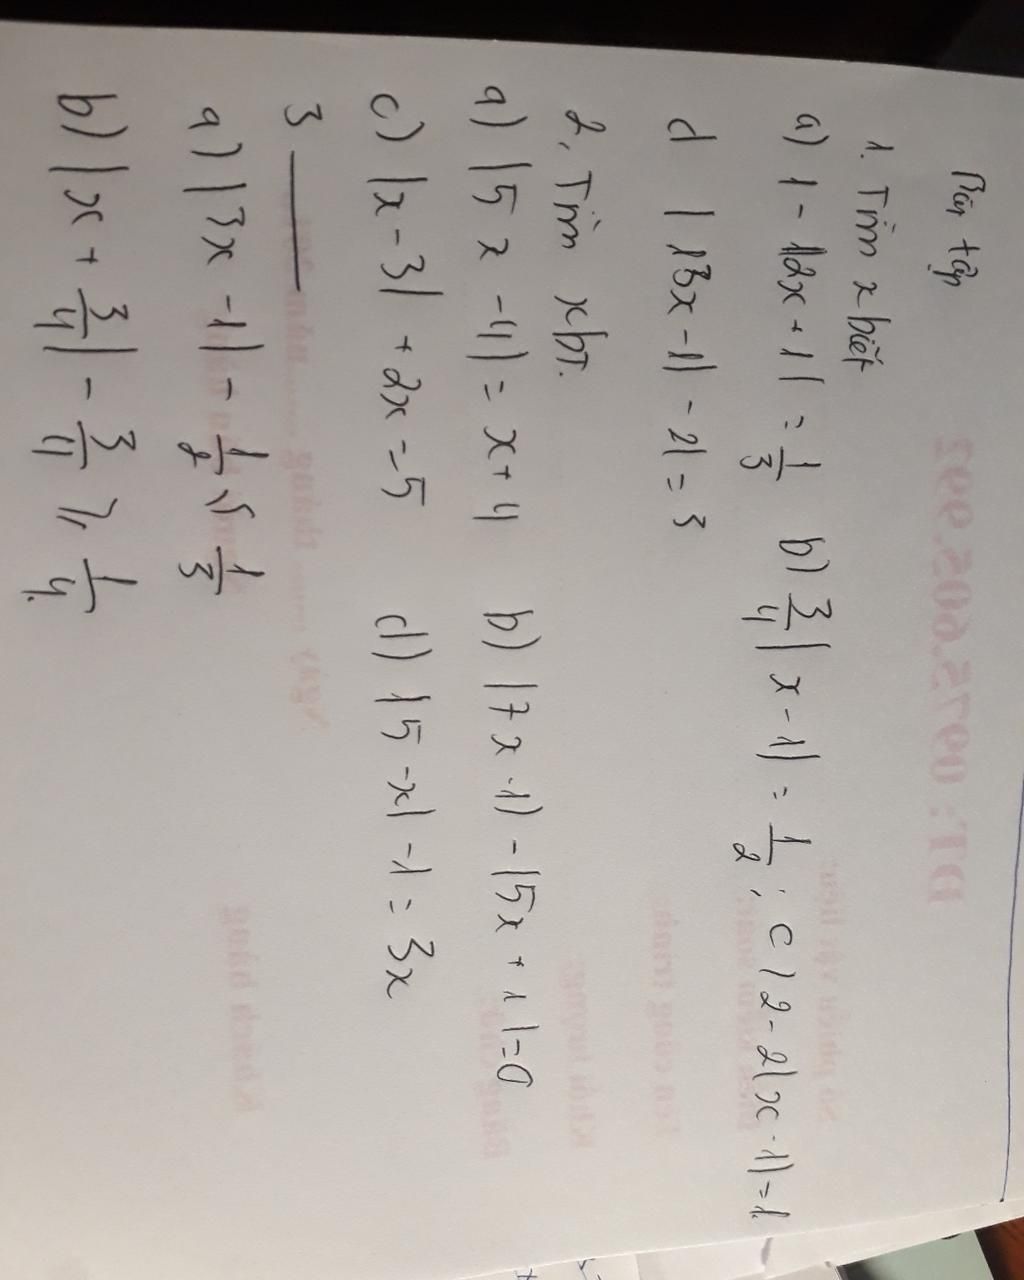 Bài tập
1. Tìm x biết
a) 1 - |2x + 1| = 1/3 b) 3/4 |x - 1| = 1/2 ; c) 2 - 2|x - 1| = 1.
d | |3x - 1| - 2| = 3
2, Tìm x bt.
a) |5x - 4| = x + 4 b) |7x - 1| - |5x + 1| = 0
c) |x - 3| + 2x = 5 d) |5 - x| - 1 = 3x
3
a) |3x - 1| - 1/2 ≤ 1/3
b) |x + 3/4| - 3/4 ≥ 1/4.
ĐT: 0975.605.992
Khách hàng